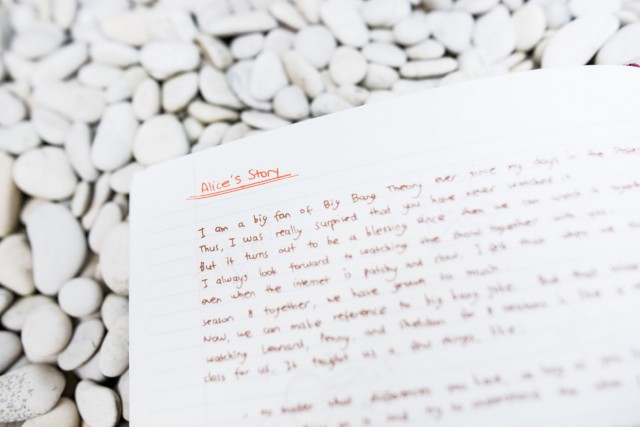 Alice's Story
I am a big fan of Big Bang Theory ever since my days in the
Thus, I was really surprised that you have never watched it
But it turns out to be a blessing since then we can watch a
I always look forward to watching the show together with you.
even when the internet is patchy and slow. I
season 8 together, we have grown so much.
Now, we can make reference to big bang joke. But that
watching Leonard, Penny, and Sheldon for 8 seasons is like a
class for us. It taught us a few things like
no matter what differences you have,
try to understand the other